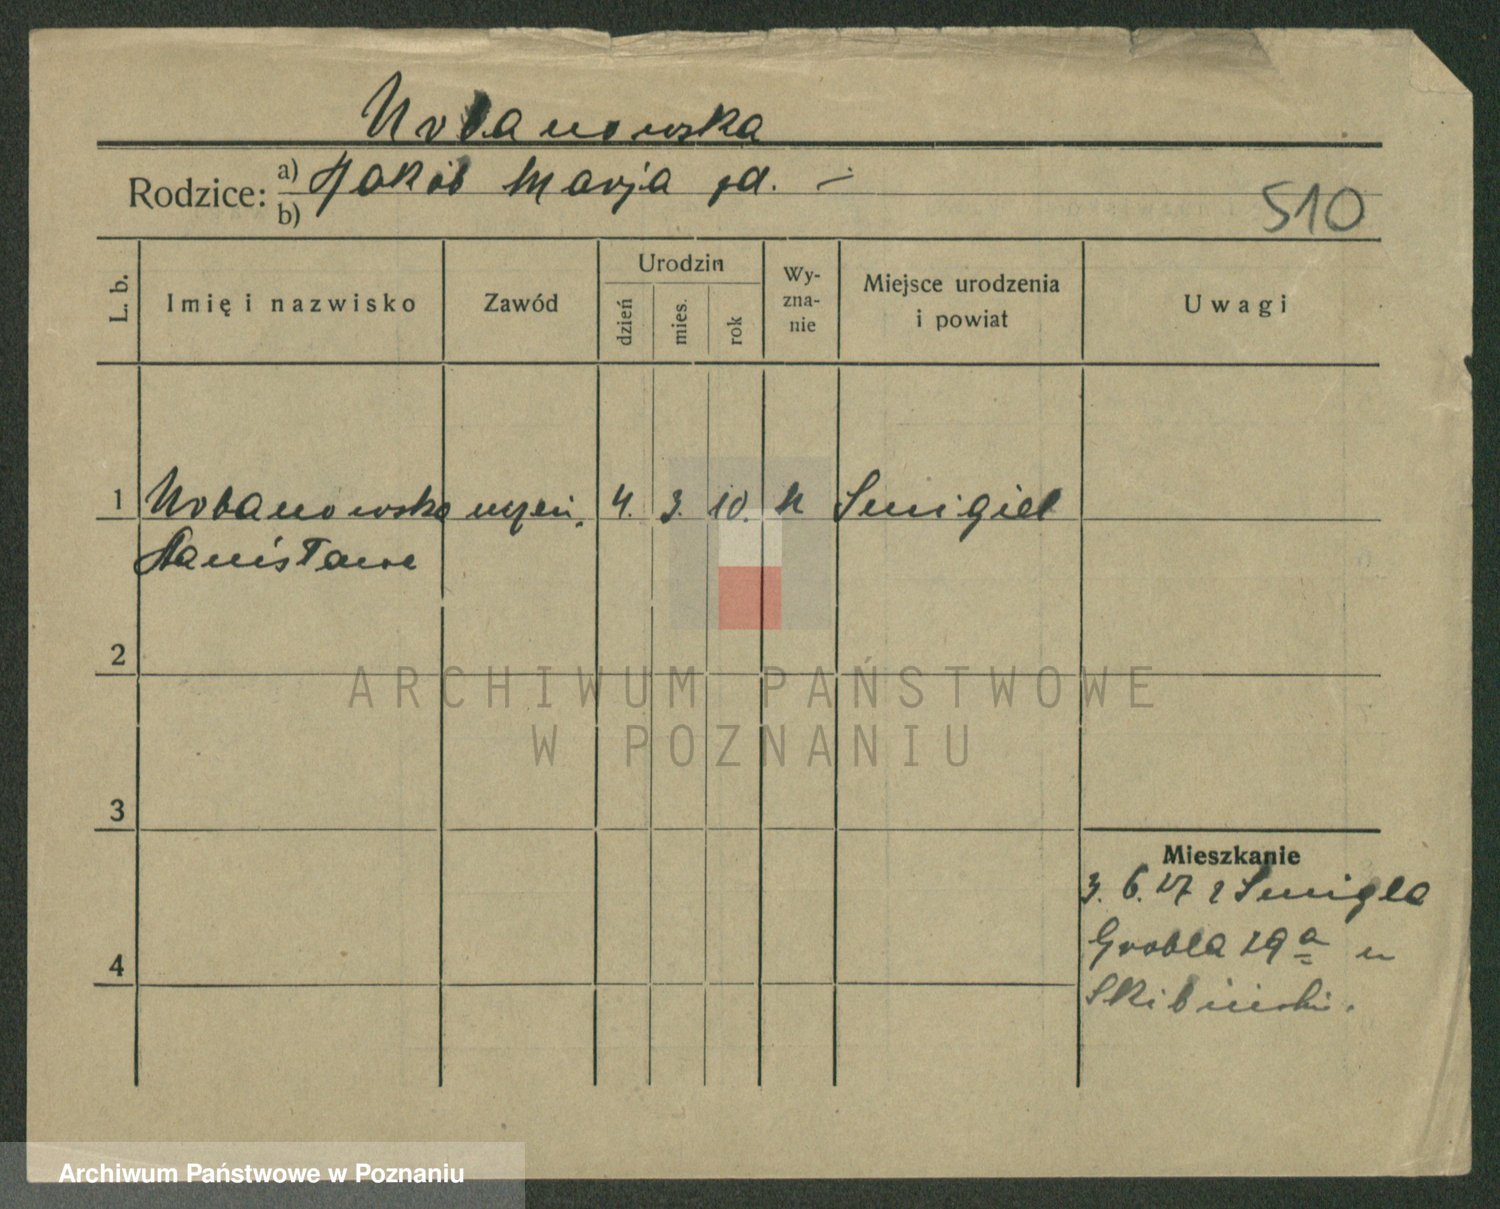 Urbanowska
Rodzice: a) Jakób Marja zd. —
b)
510
L. b. Imię i nazwisko Zawód Urodzin dzień mies. rok Wyznanie Miejsce urodzenia i powiat Uwagi
1 Urbanowska uczeń. 4. 3. 10. k Smigiel
Stanisława
2
3
4
Mieszkanie
3. 6. 27 z Smigla
Grobla 29 a u
Skibiński.
ARCHIWUM PAŃSTWOWE
W POZNANIU
Archiwum Państwowe w Poznaniu